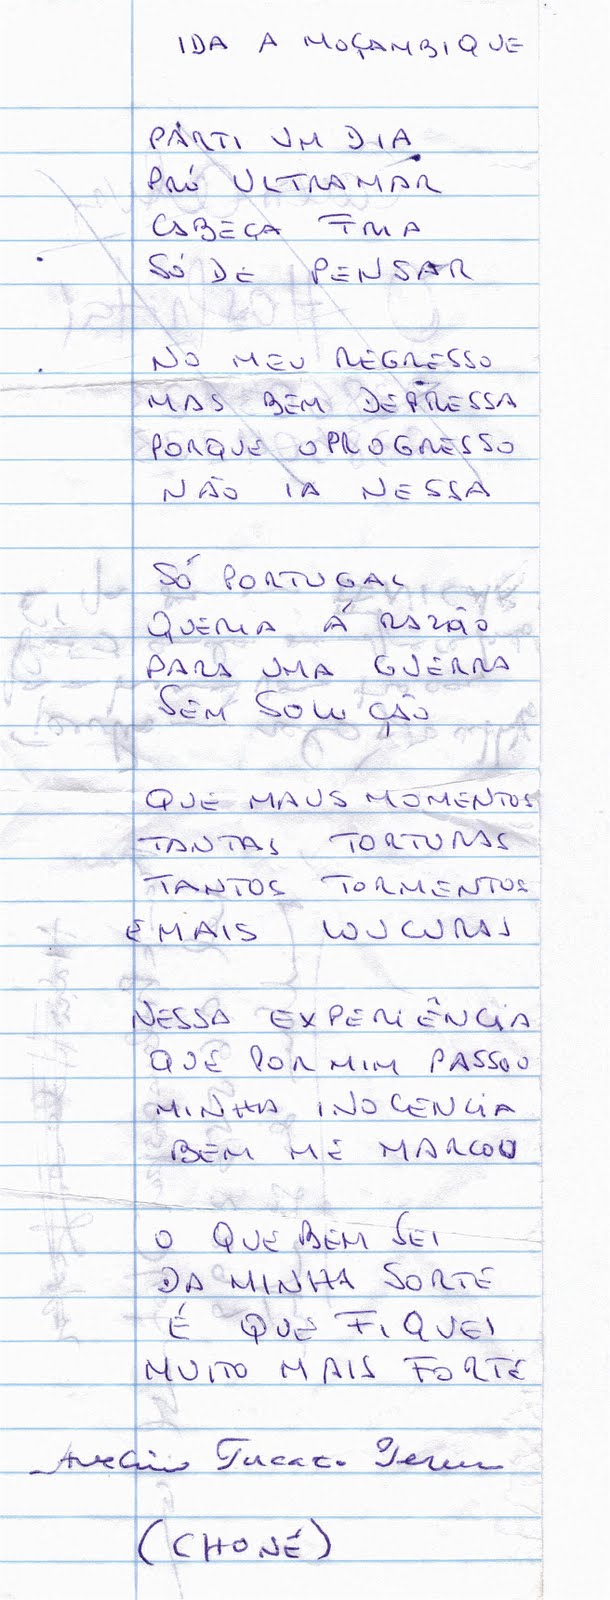 IDA A MOÇAMBIQUE
PARTI UM DIA
PRÓ ULTRAMAR
CABEÇA FRIA
SÓ DE PENSAR
NO MEU REGRESSO
MAS BEM DEPRESSA
PORQUE O PROGRESSO
NÃO IA NESSA
SÓ PORTUGAL
QUERIA Á RAZÃO
PARA UMA GUERRA
SEM SOLUÇÃO
QUE MAUS MOMENTOS
TANTAS TORTURAS
TANTOS TORMENTOS
E MAIS LOUCURAS
NESSA EXPERIÊNCIA
QUE POR MIM PASSOU
MINHA INOCENCIA
BEM ME MARCOU
O QUE BEM SEI
DA MINHA SORTE
É QUE FIQUEI
MUITO MAIS FORTE
Avelino
(CHONÉ)